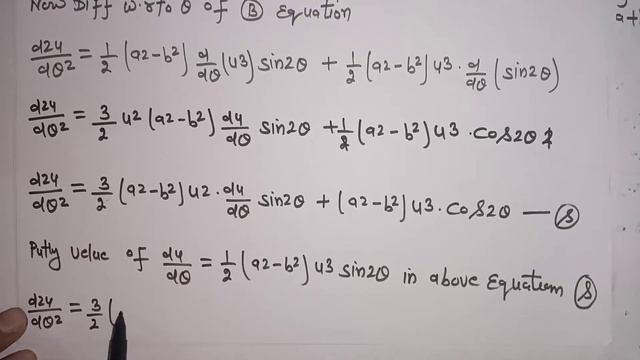 Now Diff w.r.to θ of Ⓑ Equation
d2u/dθ2 = 1/2 (a2-b2) d/dθ (u3) sin2θ + 1/2 (a2-b2) u3 . d/dθ (sin2θ)
d2u/dθ2 = 3/2 u2 (a2-b2) du/dθ sin2θ + 1/2 (a2-b2) u3 . cos2θ 2
d2u/dθ2 = 3/2 (a2-b2) u2 . du/dθ sin2θ + (a2-b2) u3 . cos2θ — Ⓢ
Putty velue of du/dθ = 1/2 (a2-b2) u3 sin2θ in above Equation Ⓢ
d2u/dθ2 = 3/2 (